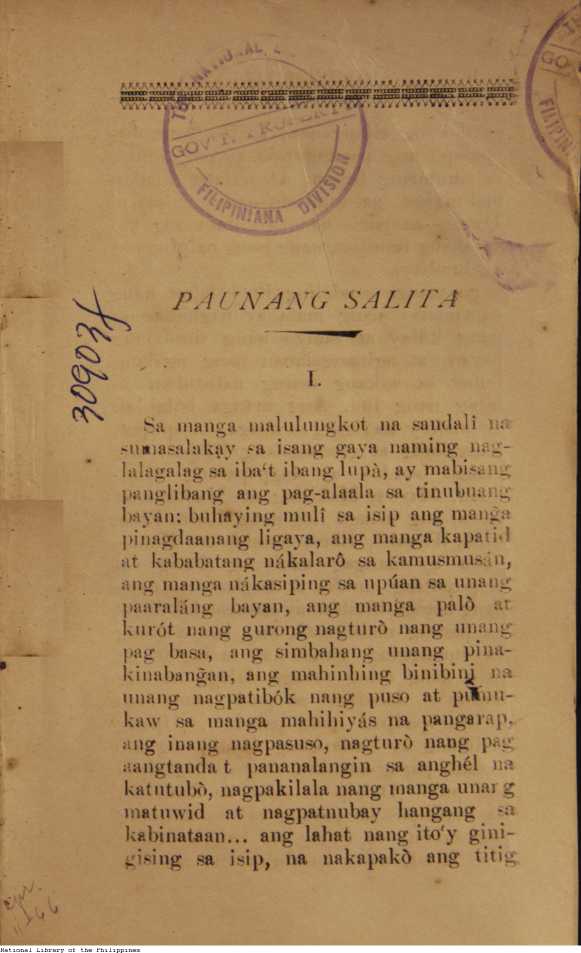 GOV'T.
FILIPINIANA DIVISION
FILIPIN
PAUNANG SALITA
309034
I.
Sa manga malulungkot na sandali na
sumasalakay sa isang gaya naming nag-
lalagalag sa iba't ibang lupà, ay mabisang
panglibang ang pag-alaala sa tinubuang
bayan; buhaying mulî sa isip ang manga
pinagdaanang ligaya, ang manga kapatid
at kababatang nákalarô sa kamusmusán,
ang manga nákasiping sa upúan sa unang
paaraláng bayan, ang manga palò at
kurót nang gurong nagturò nang unang
pag basa, ang simbahang unang pina-
kinabang̃an, ang mahinhing binibini na
unang nagpatibók nang puso at pumu-
kaw sa manga mahihiyás na pangarap,
ang inang nagpasuso, nagturò nang pag
aangtanda t pananalangin sa anghél na
katutubò, nagpakilala nang manga unang
matuwid at nagpatnubay hangang sa
kabinataan... ang lahat nang ito'y gini-
gising sa isip, na nakapakò ang titig
National Library of the Philippines